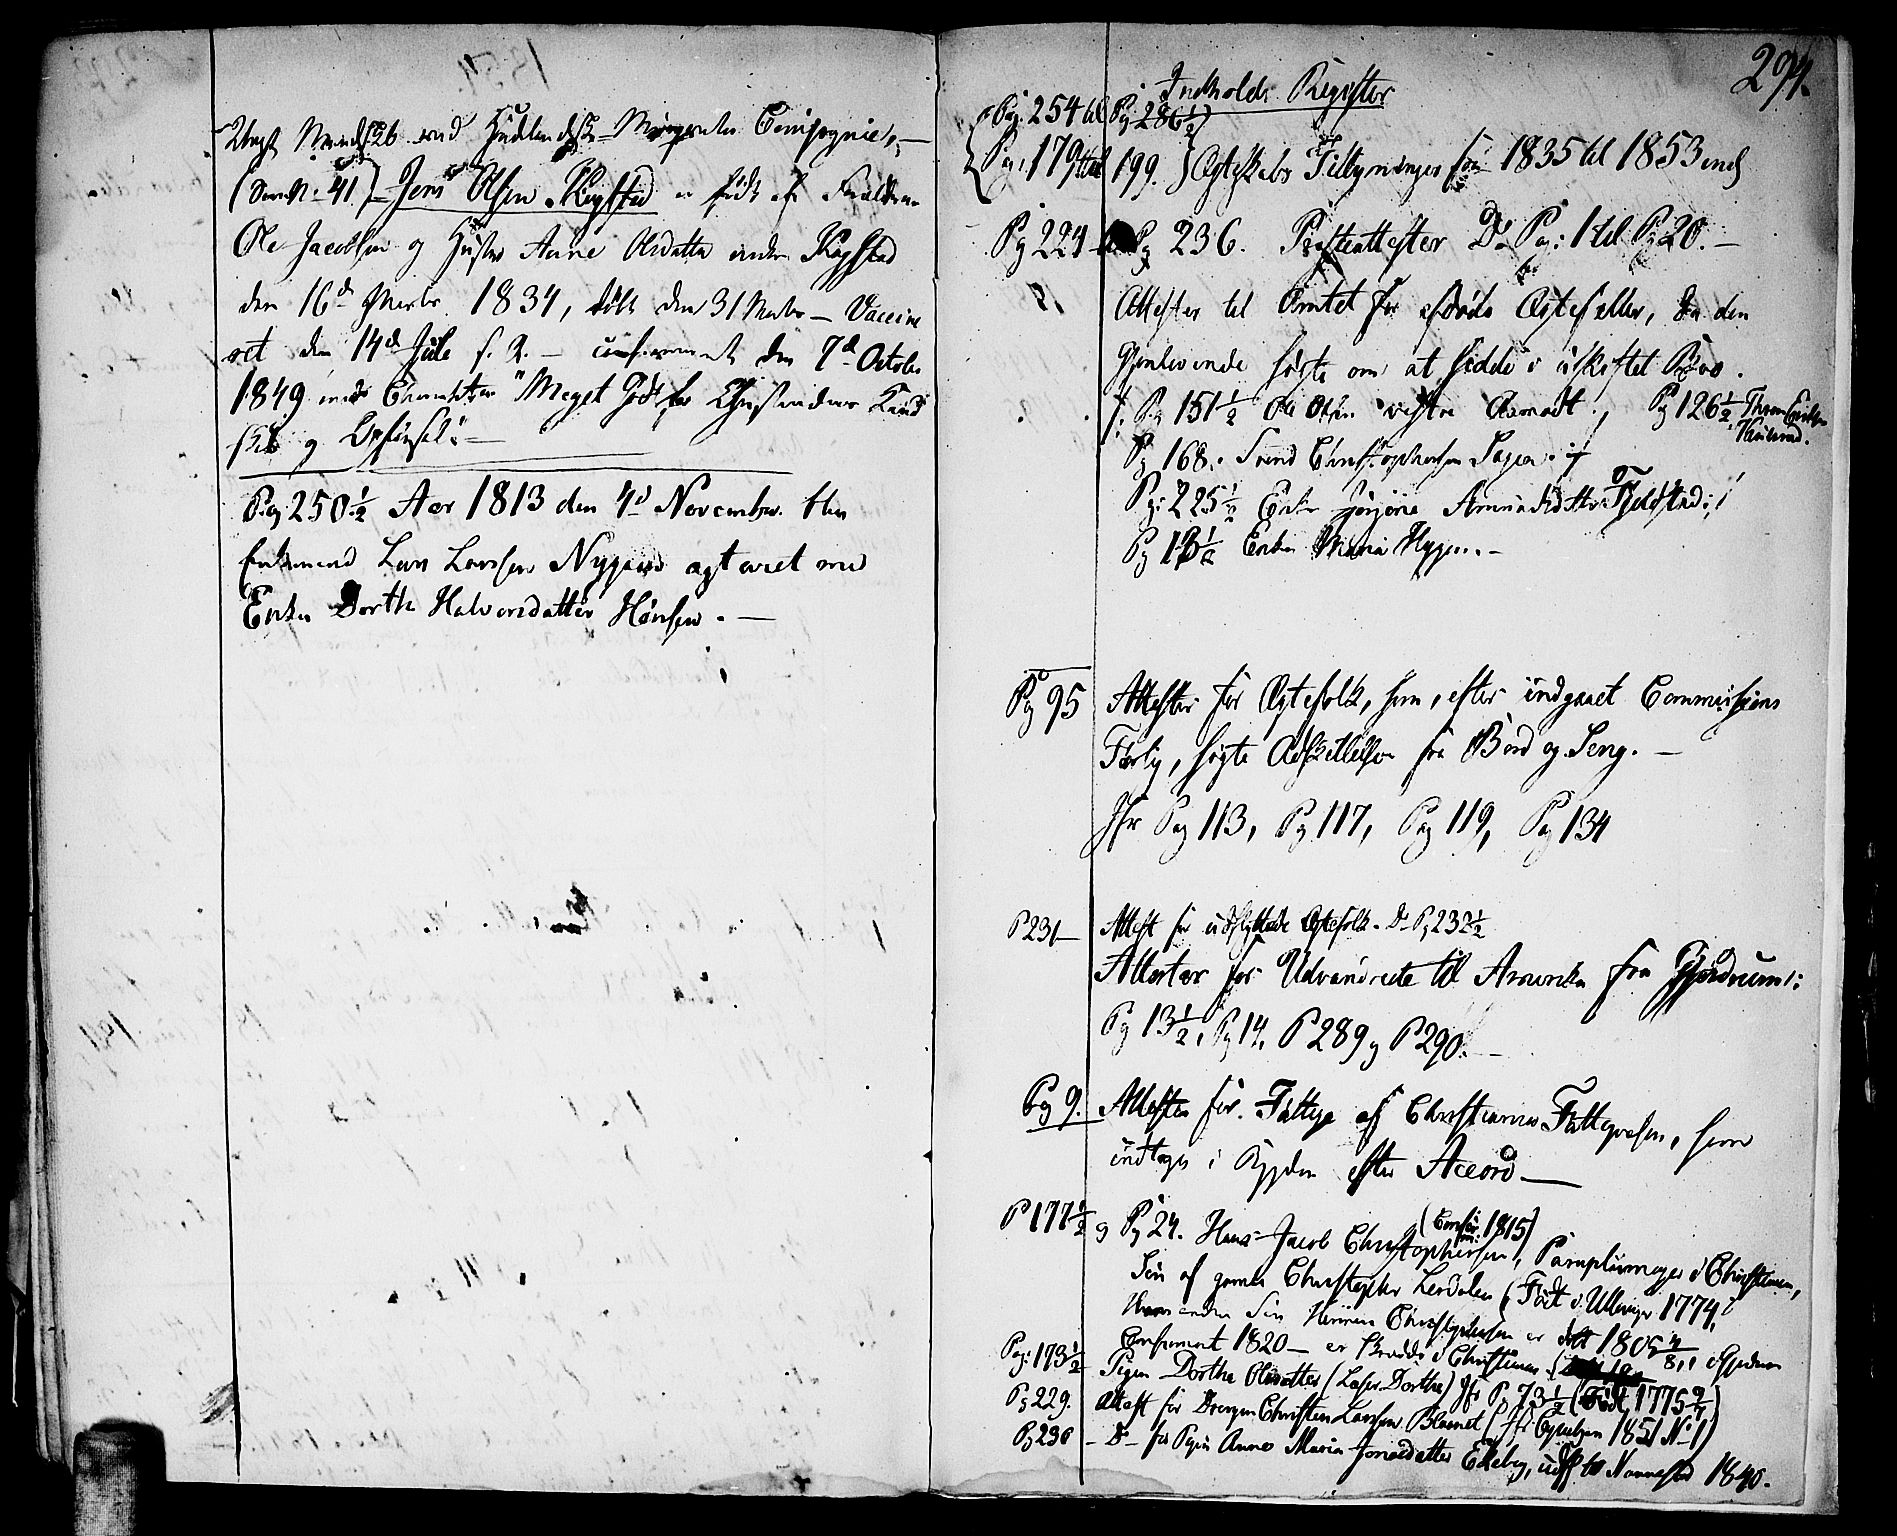 Mandsk. 26 ved Hudlandske Compagnie,
(Sem N. 41) Jens Olsen Kogstad er født af Forældrene
Ole Jacobsen og Hustru Anne Olsdatter under Kogstad
den 16d 1834, døbt den 31 - Vaccine
ret den 14d Juli s. A. - confirmeret den 7d October
1849 med Characteren "Meget Godt for Christendoms Kund
skab og
Pag 250½ Aar 1813 den 4d November blev
Enkemand Lars Larsen Nygaard ægteviet med
Enken Dorthe Halvorsdatter Hønsen. -
294.
Indholds Register
Pag. 254 til Pag 286½
Pag. 179 til 199. } Egteskabs Tillysninger fra 1835 til 1853 incl
Pg 224 Pg 236. Præsteattester Do Pag: 1 til Pg 20. -
Attester til Amtet for afdøde Egtefæller, da den
Gjenlevende søgte om at sidde i uskiftet Boe.
f: Pg 151½ Ole Olsen vestre Aamodt, Pg 126½ Thron
Pg 168. Svend Christophersen
Pg: 225½ Enke Jørgine Amundsdatter Fjeldstad
Pg 13½ Enken Maria Hygen. -
Pg 95 Attester for Egtefolk, som, efter indgaaet Commissions
Forlig, søgte Adskillelse fra Bord og Seng. -
Jfr Pag 113, Pg 117, Pag 119, Pag 134
P 231 - Attest for udflyttede Egtefolk. Do Pg 232½
Attester for Udvandrede til Amerika fra Gjerdrum:
Pg 13½, Pg 14. P 289 og P 290.
Pag 9. Attester for Fattige af Christiania Fattigvesen, som
indtages i Bygden efter Accord -
(Conf. 1815)
P 177½ og Pg 24. Hans Jacob Christophersen, Paraplumager i Christiania,
Søn af gamle Christopher Lerdalen (Født i Ullensager 1774,
Hans anden Søn Christophersen er født 1805 i Gjerdrum
Confirmeret 1820 - er i Christiania
Pag: 193½ Pigen Dorthe Olsdatter (Dorthe) Jfr Pg 73½ (Født 1775
Pg 229. Attest for Drengen Christen Larsen (Jfr 1851 N-1)
Pg 236 - Do - for Pigen Anne Maria Jonasdatter Elleby, udfl. til Nannestad 1840.